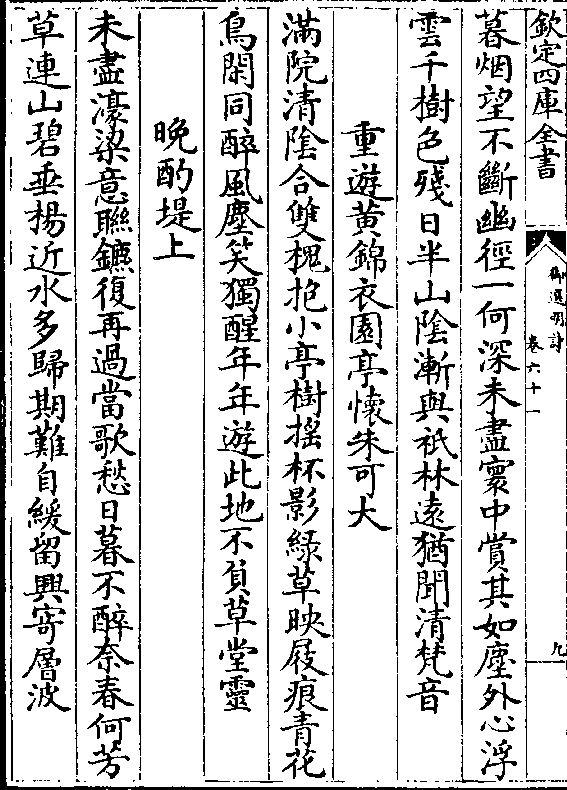 欽定四庫全書
御選明詩
卷六十一
九
暮烟望不斷幽徑一何深未盡寰中賞其如塵外心浮
雲千樹色殘日半山陰漸與祇林遠猶聞清梵音
重遊黄錦衣園亭懷朱可大
滿院清陰合雙槐抱小亭樹揺杯影緑草映屐痕青花
鳥閑同醉風塵笑獨醒年年遊此地不負草堂靈
晚酌堤上
未盡濠梁意聯鑣復再過當歌愁日暮不醉奈春何芳
草連山碧垂楊近水多歸期難自緩留興寄層波